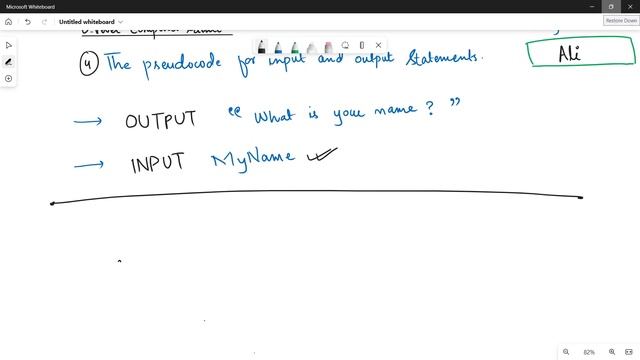 Microsoft Whiteboard
Untitled whiteboard
Restore Down
(4) The pseudocode for input and output statements.
Ali
→ OUTPUT “ What is your name ? ”
→ INPUT MyName ✓
82%